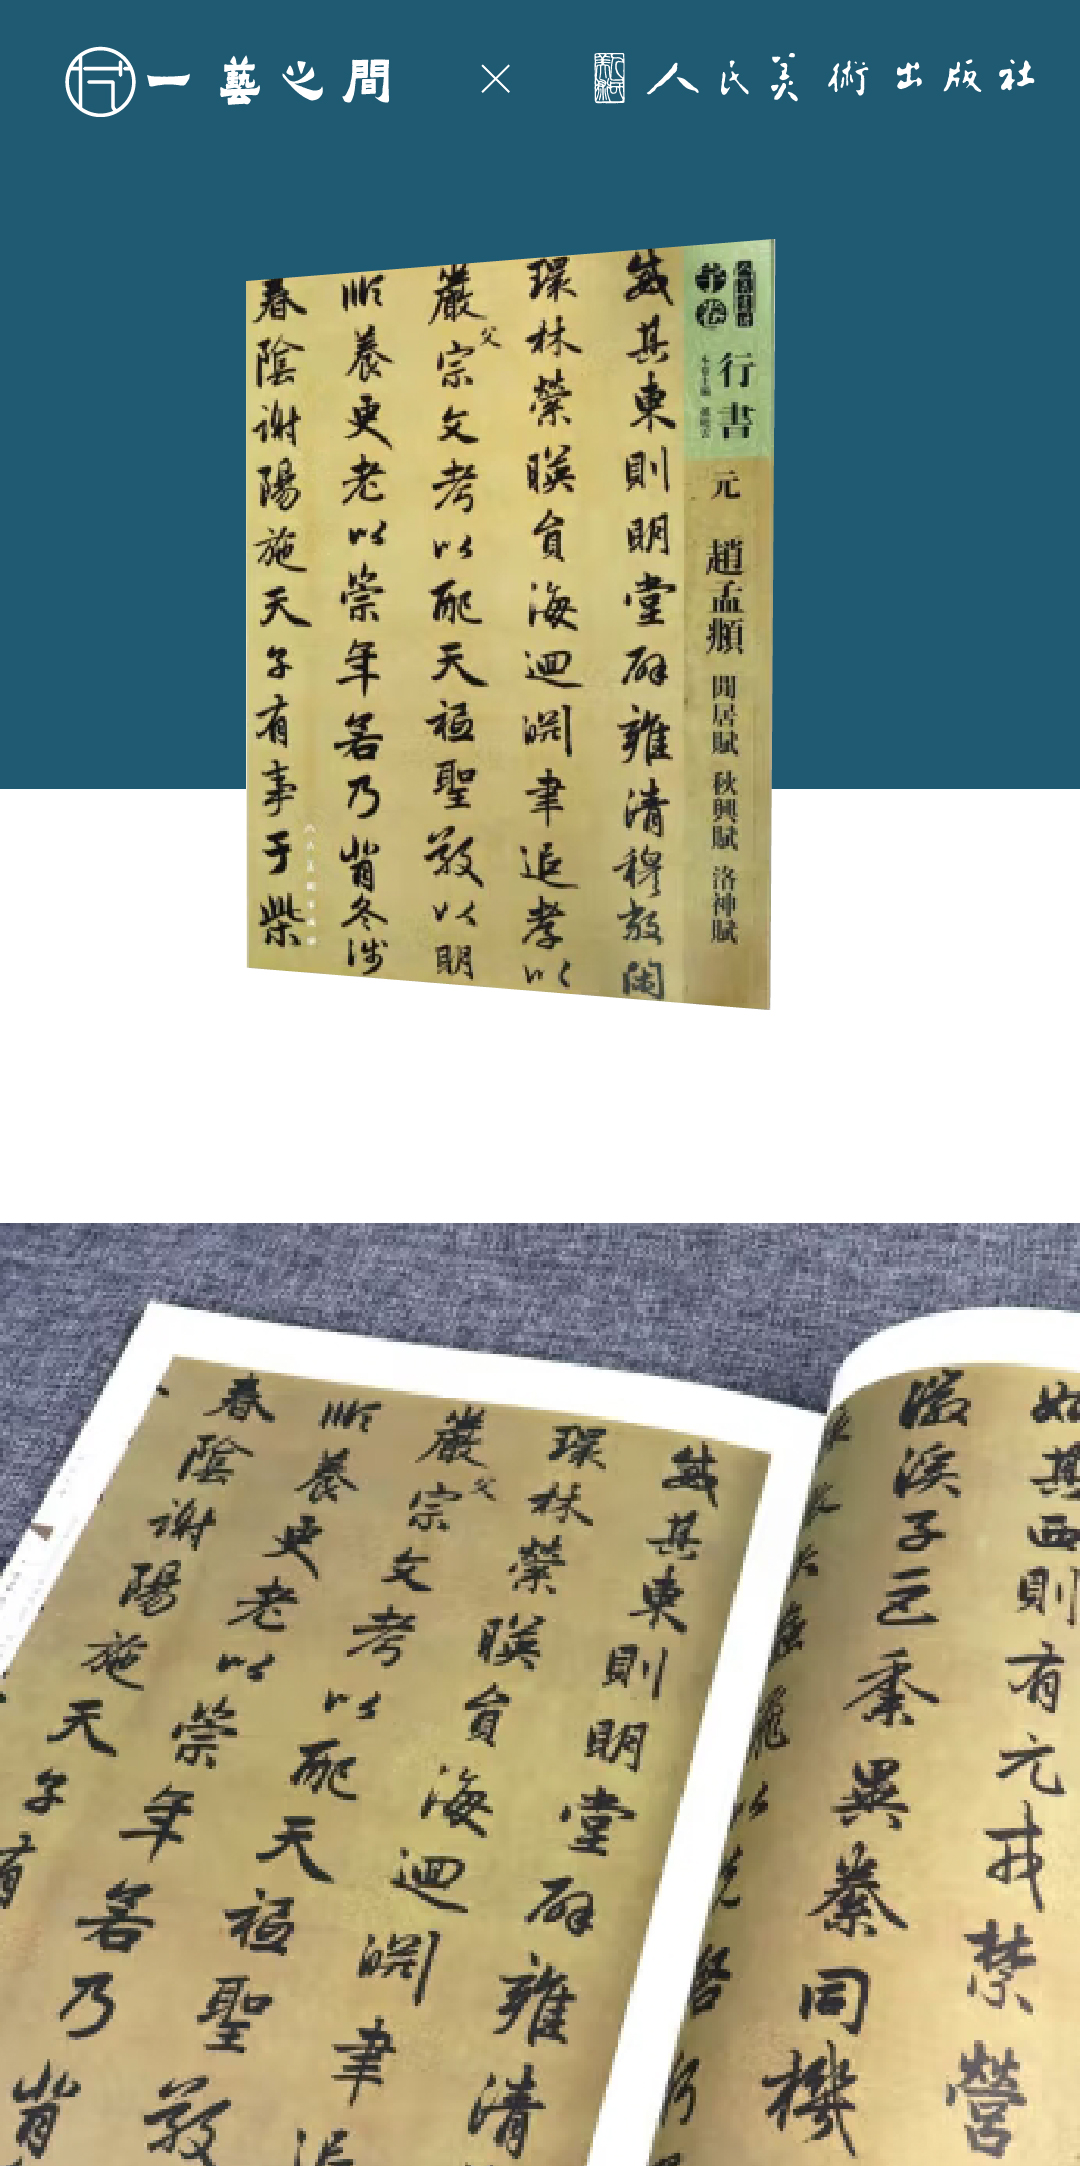 一藝之間 × 人民美術出版社
人美書譜
宇卷
行書
元 趙孟頫 閒居賦 秋興賦 洛神賦
威其東則明堂辟雍清穆敞閑
環林縈映員海迴淵聿追孝以
嚴父宗文考以配天祗聖敬以明
順養更老以崇年若乃背冬涉
春陰謝陽施天子有事于柴
人民美術出版社
其西則有元戎禁營
徽溪子巨黍異絭同機
飛以先啓行
威其東則明堂辟雍清
環林縈映員海迴淵聿追
嚴父宗文考以配天祗聖敬
順養更老以崇年若乃背
春陰謝陽施天子有